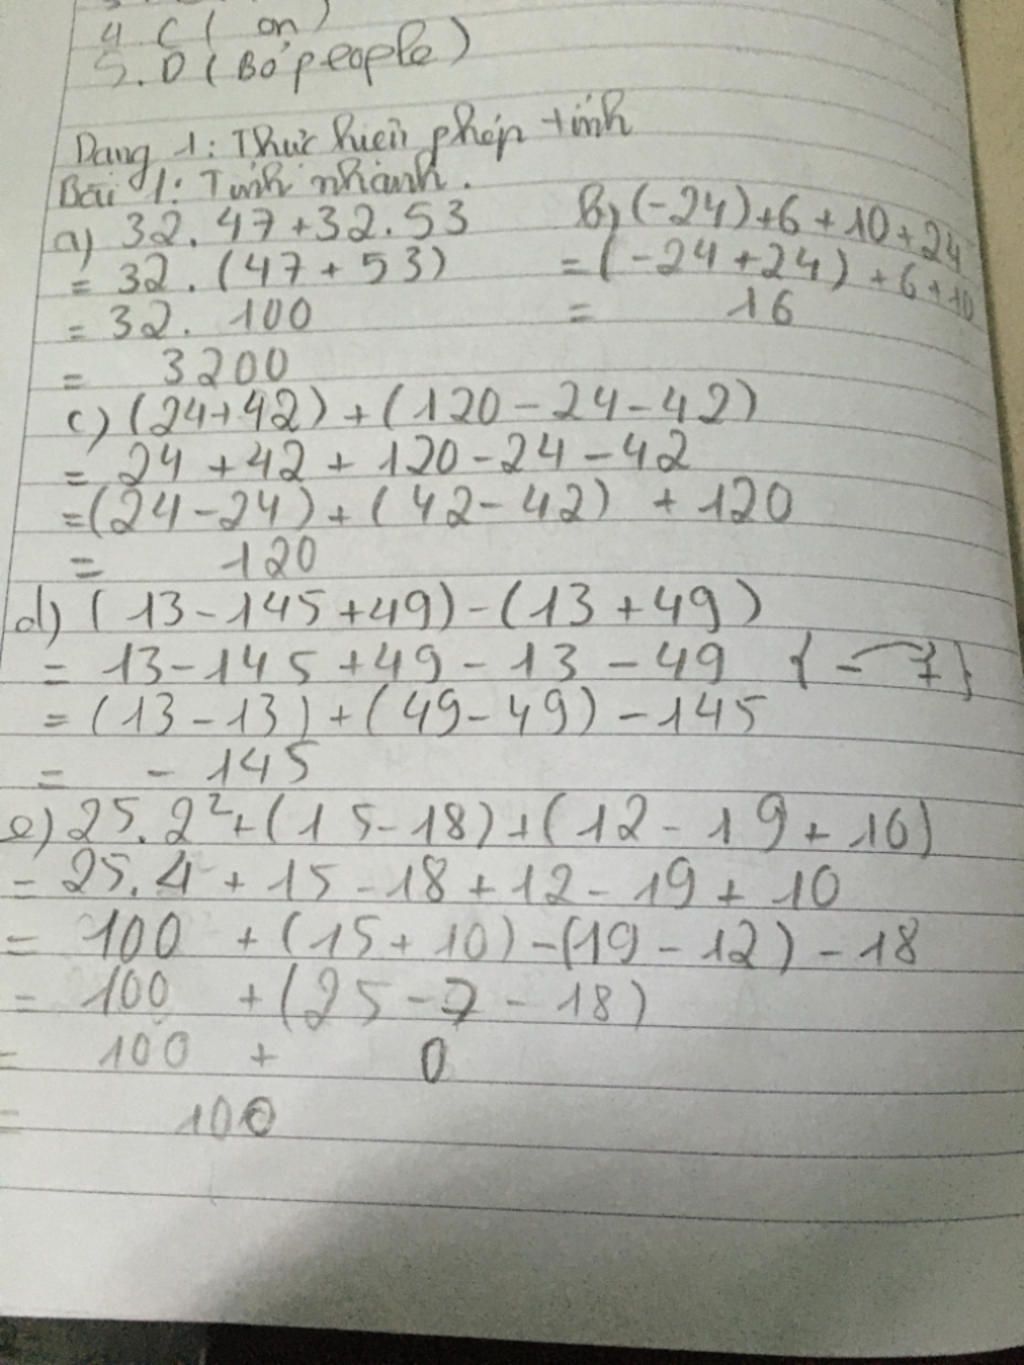 4. C ( on )
5. D ( Bỏ people )
Dạng 1: Thực hiện phép tính
Bài 1: Tính nhanh.
a) 32. 47 + 32. 53
= 32. (47 + 53)
= 32. 100
= 3200
b, (-24) + 6 + 10 + 24
= (-24 + 24) + 6 + 10
= 16
c) (24 + 42) + (120 - 24 - 42)
= 24 + 42 + 120 - 24 - 42
= (24 - 24) + (42 - 42) + 120
= 120
d) (13 - 145 + 49) - (13 + 49)
= 13 - 145 + 49 - 13 - 49 { - 7 }
= (13 - 13) + (49 - 49) - 145
= - 145
e) 25. 2² + (15 - 18) + (12 - 19 + 10)
= 25. 4 + 15 - 18 + 12 - 19 + 10
= 100 + (15 + 10) - (19 - 12) - 18
= 100 + (25 - 7 - 18)
= 100 + 0
= 100